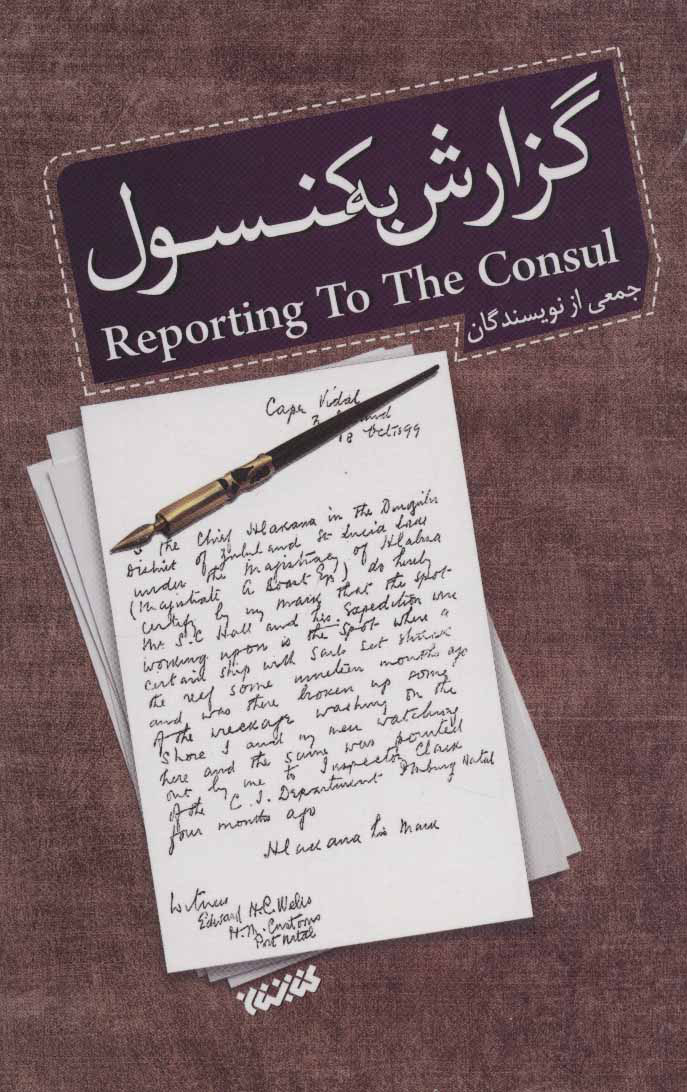 گزارش به کنسول
Reporting To The Consul
جمعی از نویسندگان
Cape Vidal
18 Oct 1899
the Chief Hlakana in the
District of Zululand and St Lucia
under the Magistracy of Hlabisa
(Magistrate A Boast Esq) do hereby
certify by my mark that the spot
Mr. S.C Hall and his Expedition were
working upon is the spot where a
certain ship with sails set struck
the reef some nineteen months ago
and was there broken up some
of the wreckage washing on the
shore I and my men watching
here and the same was pointed
out by me to Inspector Clark
of the C.I. Department Natal
four months ago
Hlakana his Mark
Witness
Edward H.C. Wells
H.M. Customs
Port Natal